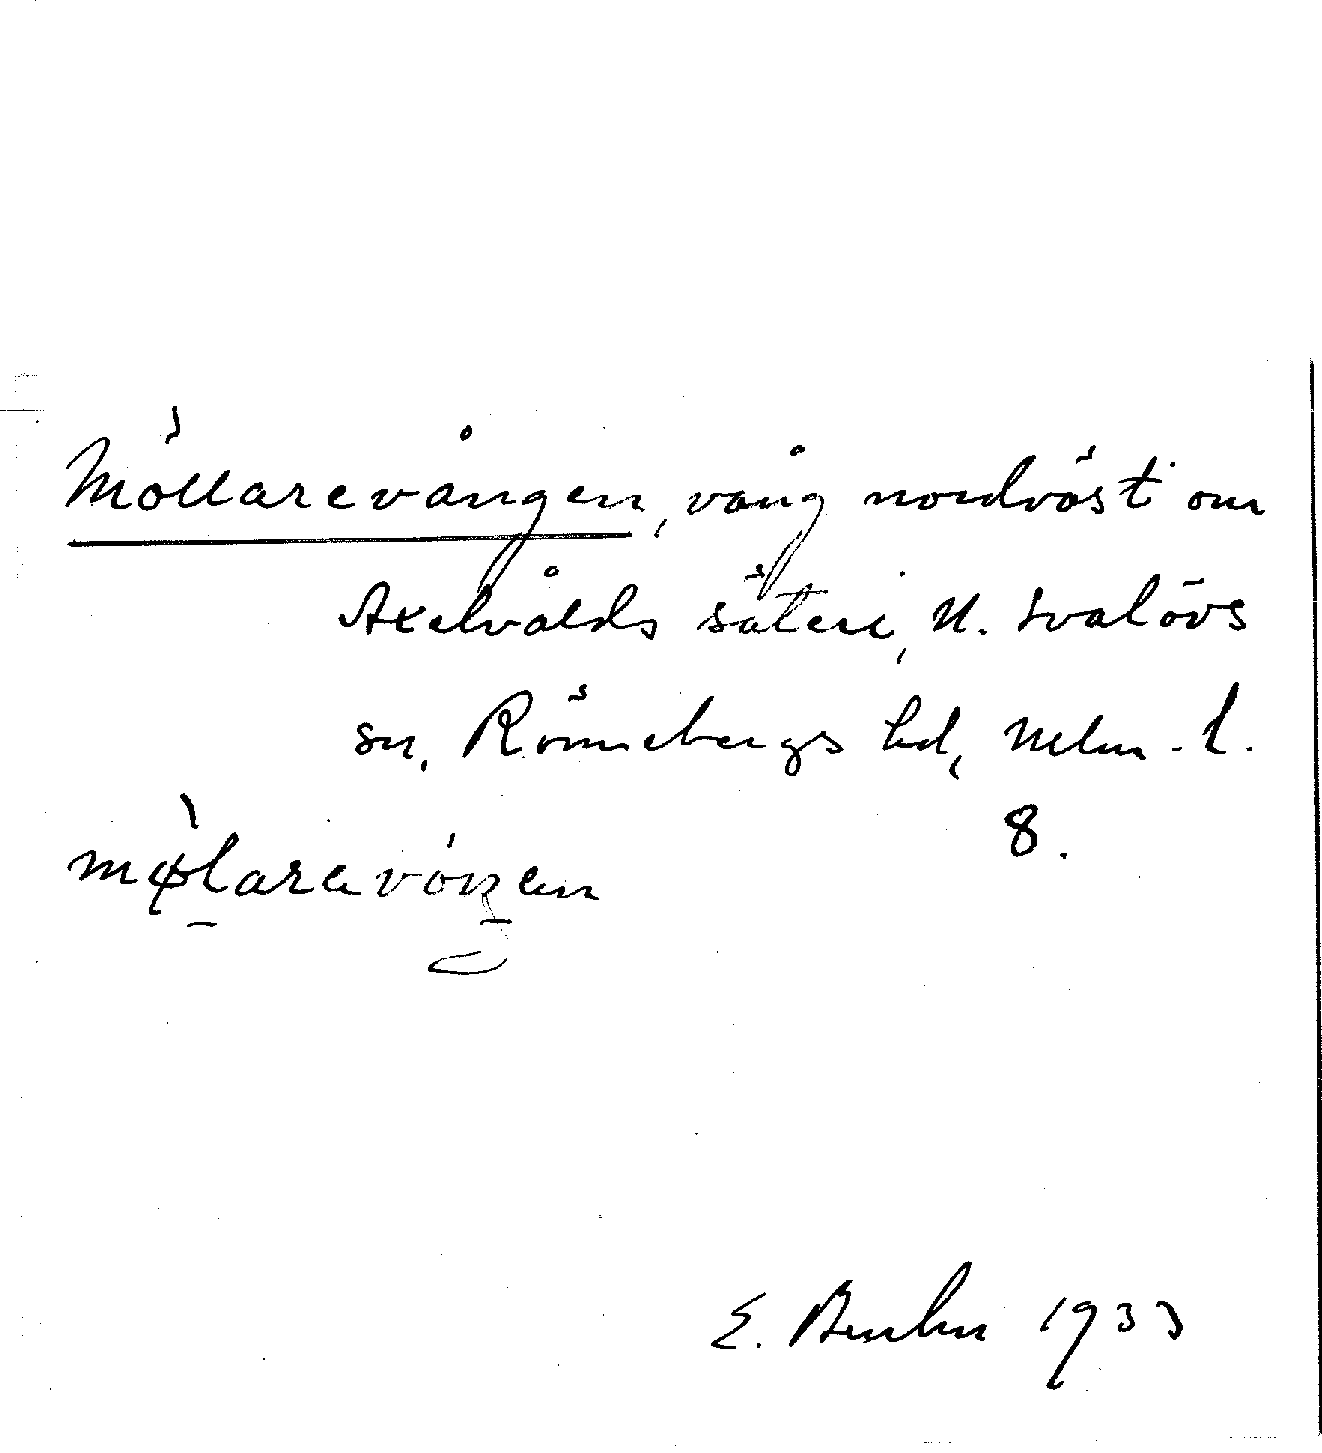 Möllarevången, vång nordväst om
Axelvålds säteri, N. Svalövs
sn, Rönnebergs hd, Mlm. l.
8.
mølarevóŋen
E. 1933